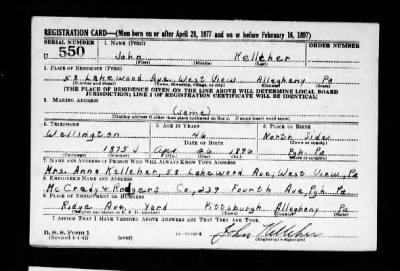 REGISTRATION CARD—(Men born on or after April 28, 1877 and on or before February 16, 1897)
SERIAL NUMBER 1. NAME (Print) ORDER NUMBER
U 550 John Kelleher
(First) (Middle) (Last)
2. PLACE OF RESIDENCE (Print)
58 Lakewood Ave, West View, Allegheny Pa
(Number and street) (Town, township, village, or city) (County) (State)
[THE PLACE OF RESIDENCE GIVEN ON THE LINE ABOVE WILL DETERMINE LOCAL BOARD
JURISDICTION; LINE 2 OF REGISTRATION CERTIFICATE WILL BE IDENTICAL]
3. MAILING ADDRESS
(same)
[Mailing address if other than place indicated on line 2. If same insert word same]
4. TELEPHONE 5. AGE IN YEARS 6. PLACE OF BIRTH
Wellington 46 North Side
DATE OF BIRTH (Town or county)
1875 J 1896 Pgh. Pa
(Exchange) (Number) (Mo.) (Day) (Yr.) (State or country)
7. NAME AND ADDRESS OF PERSON WHO WILL ALWAYS KNOW YOUR ADDRESS
Mrs. Anne Kelleher, 58 Lakewood Ave, West View, Pa
8. EMPLOYER'S NAME AND ADDRESS
McCrady + Rodgers Co., 239 Fourth Ave, Pgh. Pa
9. PLACE OF EMPLOYMENT OR BUSINESS
Ridge Ave. Yard Pittsburgh Allegheny Pa
(Number and street or R. F. D. number) (Town) (County) (State)
I AFFIRM THAT I HAVE VERIFIED ABOVE ANSWERS AND THAT THEY ARE TRUE.
D. S. S. Form 1
(Revised 4-1-42) (over) John Kelleher
(Registrant's signature)